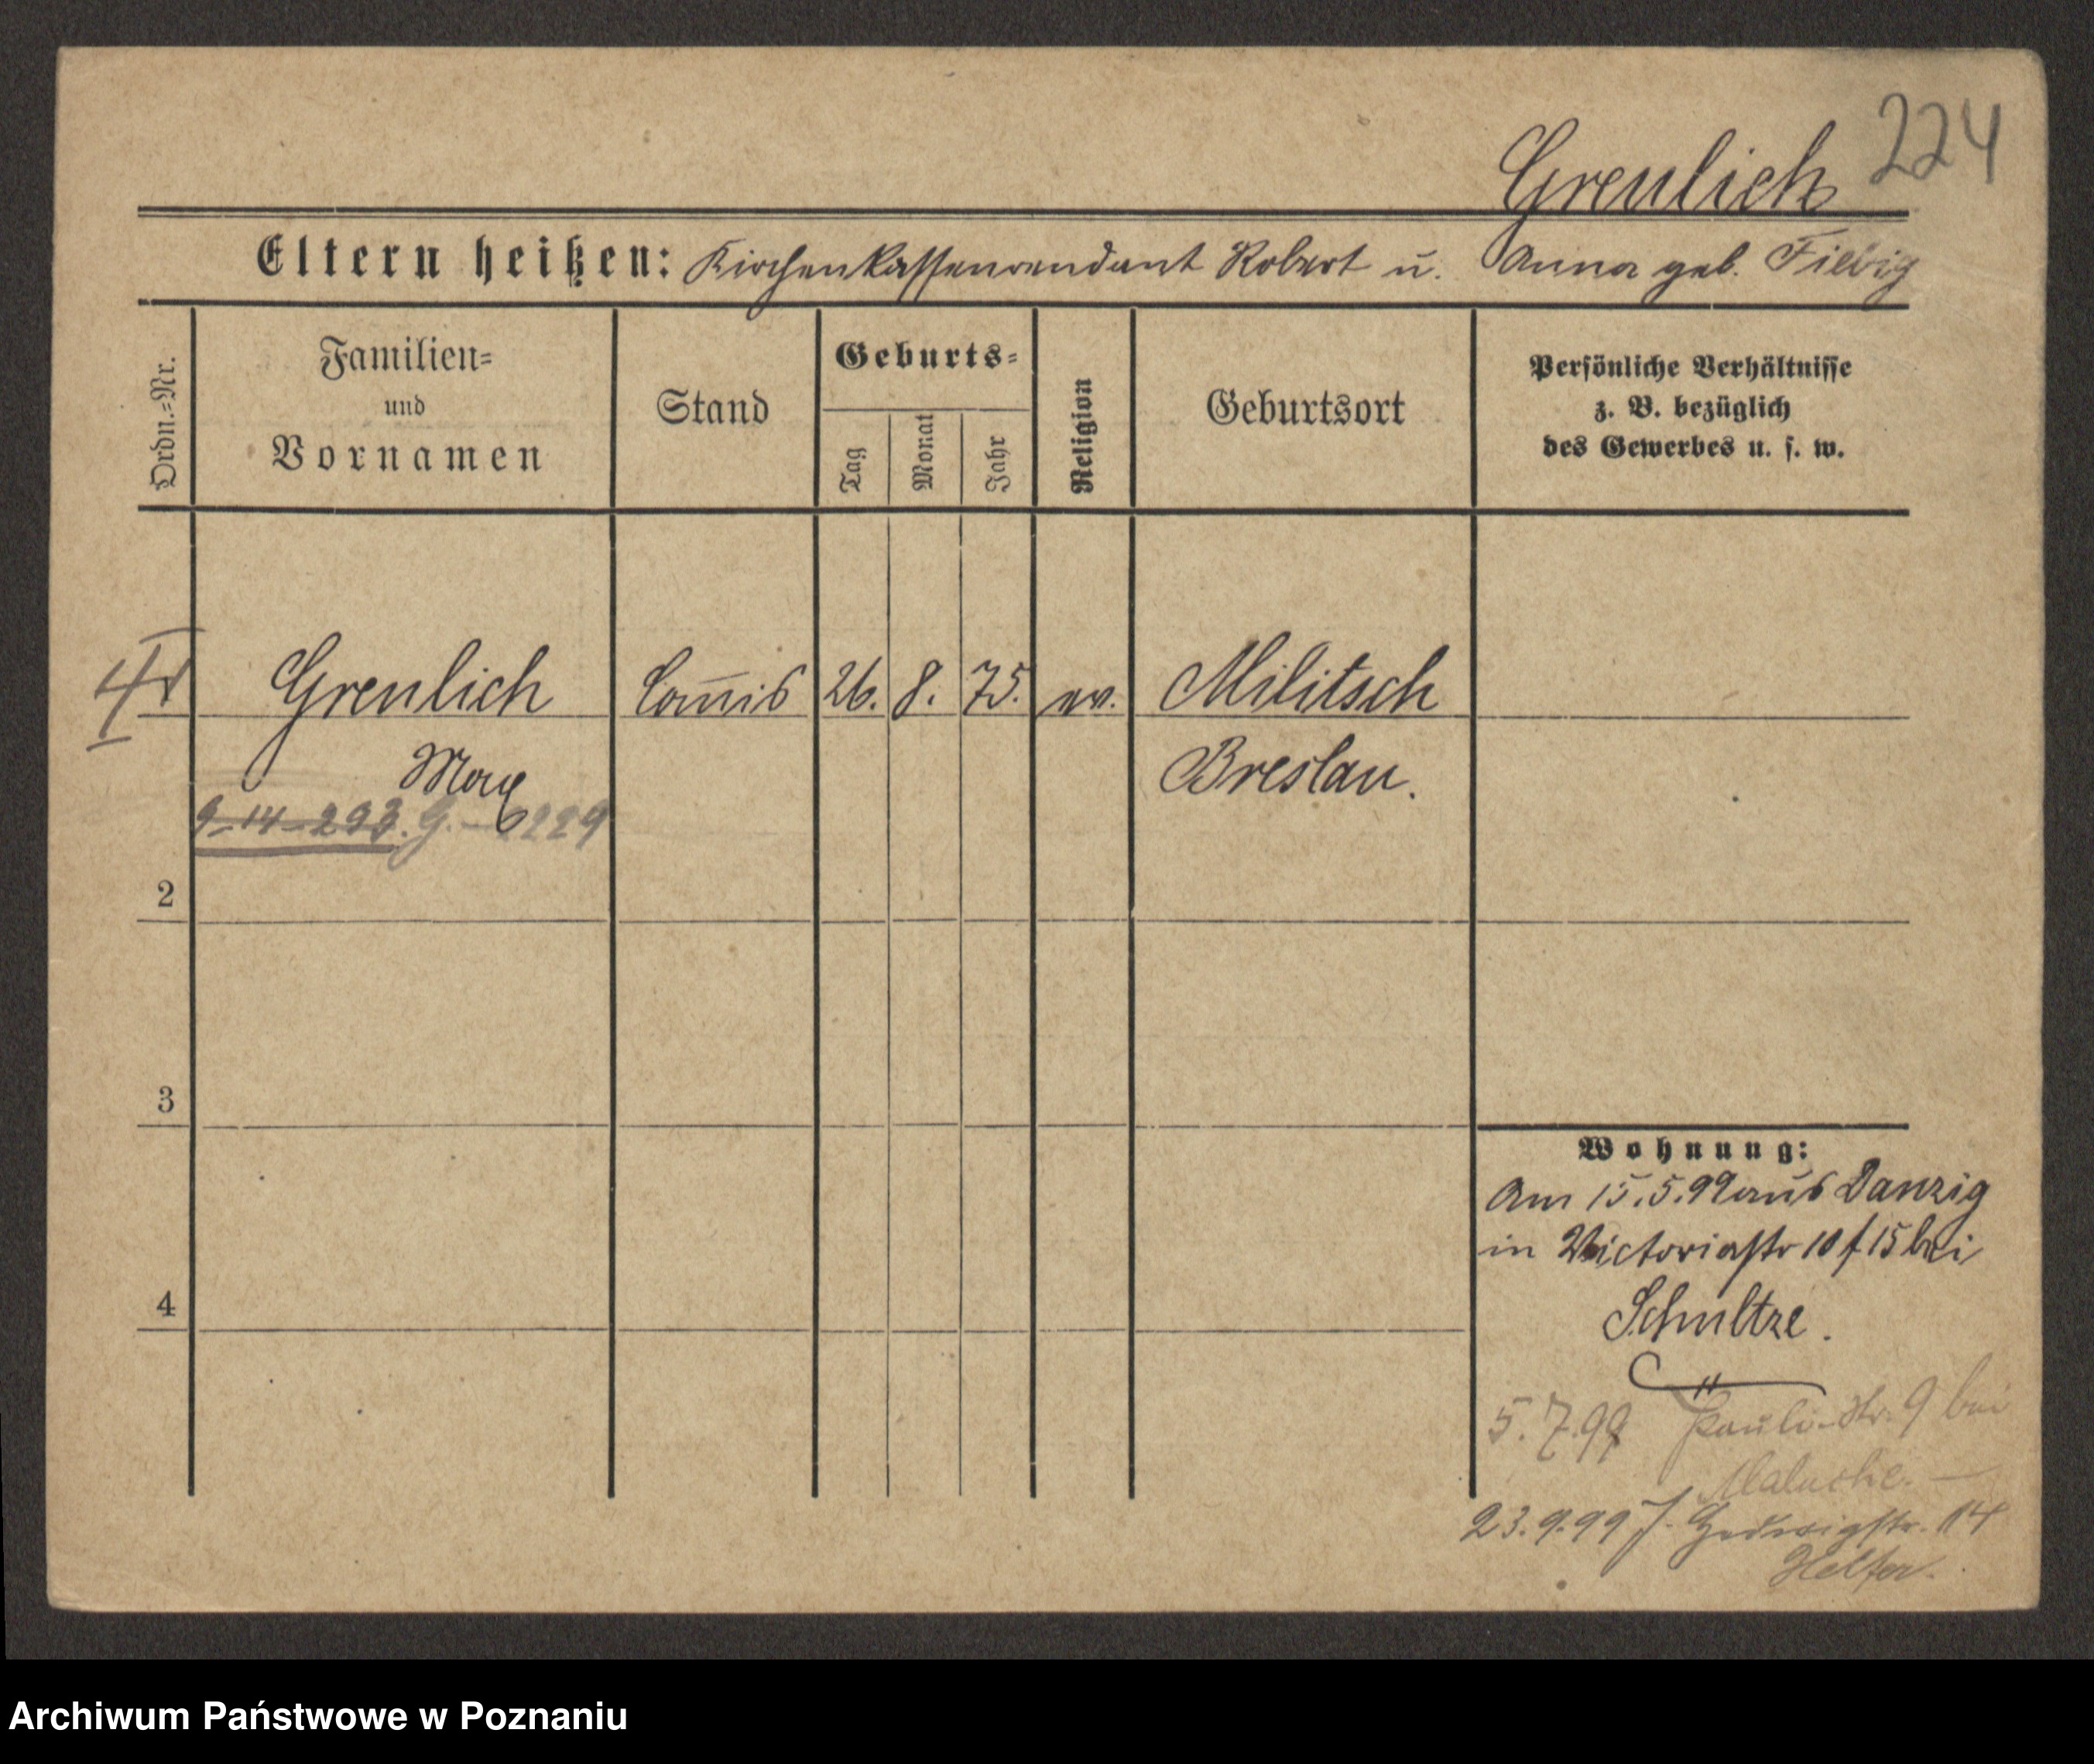 224
Greulich
Eltern heißen: Kirchenkassenrendant Robert u. Anna geb. Fiebig
Ordn.=Nr.
Familien=
und
Vornamen
Stand
Geburts=
Tag
Monat
Jahr
Religion
Geburtsort
Persönliche Verhältnisse
z. B. bezüglich
des Gewerbes u. s. w.
Greulich Com̄is 26. 8. 75. ev. Militsch
Max Breslau.
9-14-293. G. 229
2
3
4
Wohnung:
Am 15.5.99 aus Danzig
in Victoriastr 10 f 15 bei
Schultze.
5.7.99 Pauli-Str. 9 bei
23.9.99 J. Hedwigstr. 14
Archiwum Państwowe w Poznaniu